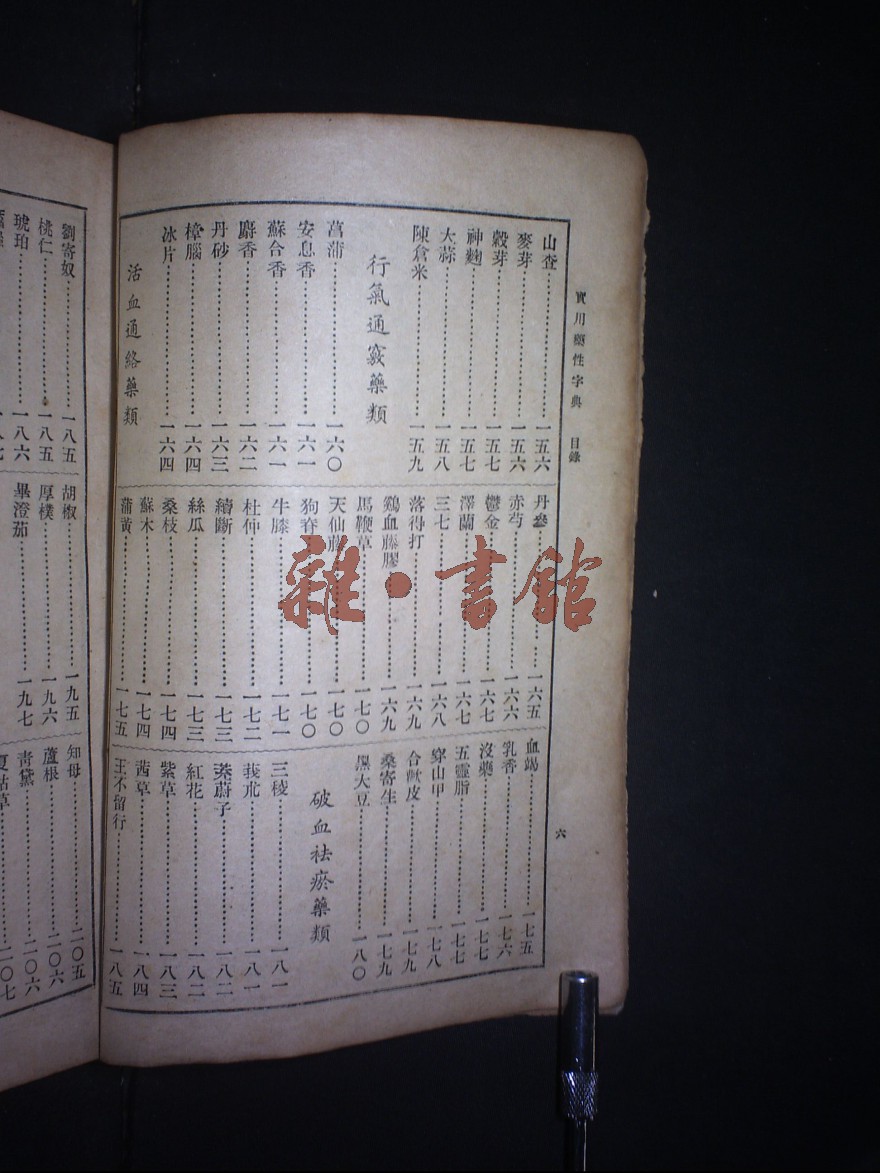 實用藥性字典 目錄
六
山查 一五六
麥芽 一五六
穀芽 一五七
神麴 一五七
大蒜 一五八
陳倉米 一五九
行氣通竅藥類
菖蒲 一六〇
安息香 一六一
蘇合香 一六一
麝香 一六二
丹砂 一六三
樟腦 一六四
冰片 一六四
活血通絡藥類
丹參 一六五
赤芍 一六六
鬱金 一六七
澤蘭 一六七
三七 一六八
落得打 一六九
鷄血藤膠 一六九
馬鞭草 一七〇
天仙藤 一七〇
狗脊 一七〇
牛膝 一七一
杜仲 一七二
續斷 一七三
絲瓜 一七三
桑枝 一七四
蘇木 一七四
蒲黃 一七五
血竭 一七五
乳香 一七六
沒藥 一七七
五靈脂 一七七
穿山甲 一七八
合歡皮 一七九
桑寄生 一七九
黑大豆 一八〇
破血祛瘀藥類
三稜 一八一
莪朮 一八一
茺蔚子 一八二
紅花 一八二
紫草 一八三
茜草 一八四
王不留行 一八五
劉寄奴 一八五
桃仁 一八五
琥珀 一八六
胡椒 一九五
厚樸 一九六
畢澄茄 一九七
知母 二〇五
蘆根 二〇六
靑黛 二〇六
夏枯草 二〇七
雜·書館